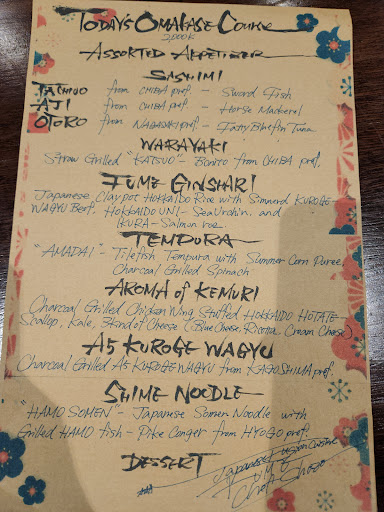 TODAYS OMAKASE COURSE
2000K
ASSORTED APPETIZER
SASHIMI
TACHIUO from CHIBA pref. - Sword Fish
AJI from CHIBA pref. - Horse Mackerel
OTORO from NAGASAKI pref. - Fatty Bluefin Tuna
WARAYAKI
Straw Grilled "KATSUO" - Bonito from CHIBA pref.
FUME GINSHARI
Japanese Clay pot HOKKAIDO Rice with Simmerd KUROGE-
WAGYU Berf. HOKKAIDO UNI - SeaUrchin. and
IKURA - Salmon roe
TENPURA
"AMADAI" - Tilefish Tempura with Summer Corn Puree
Charcoal Grilled Spinach
AROMA of KEMURI
Charcoal Grilled Chicken Wing stuffed HOKKAIDO HOTATE -
Scallop, Kale, 3kind of Cheese (Blue Cheese, Ricotta, Cream Cheese)
A5 KUROGE WAGYU
Charcoal Grilled A5 KUROGE WAGYU from KAGOSHIMA pref.
SHIME NOODLE
"HAMO SOMEN" - Japanese Somen Noodle with
Grilled HAMO fish - Pike Conger from HYOGO pref.
DESSERT
Japanese Fusion Cuisine
Chef